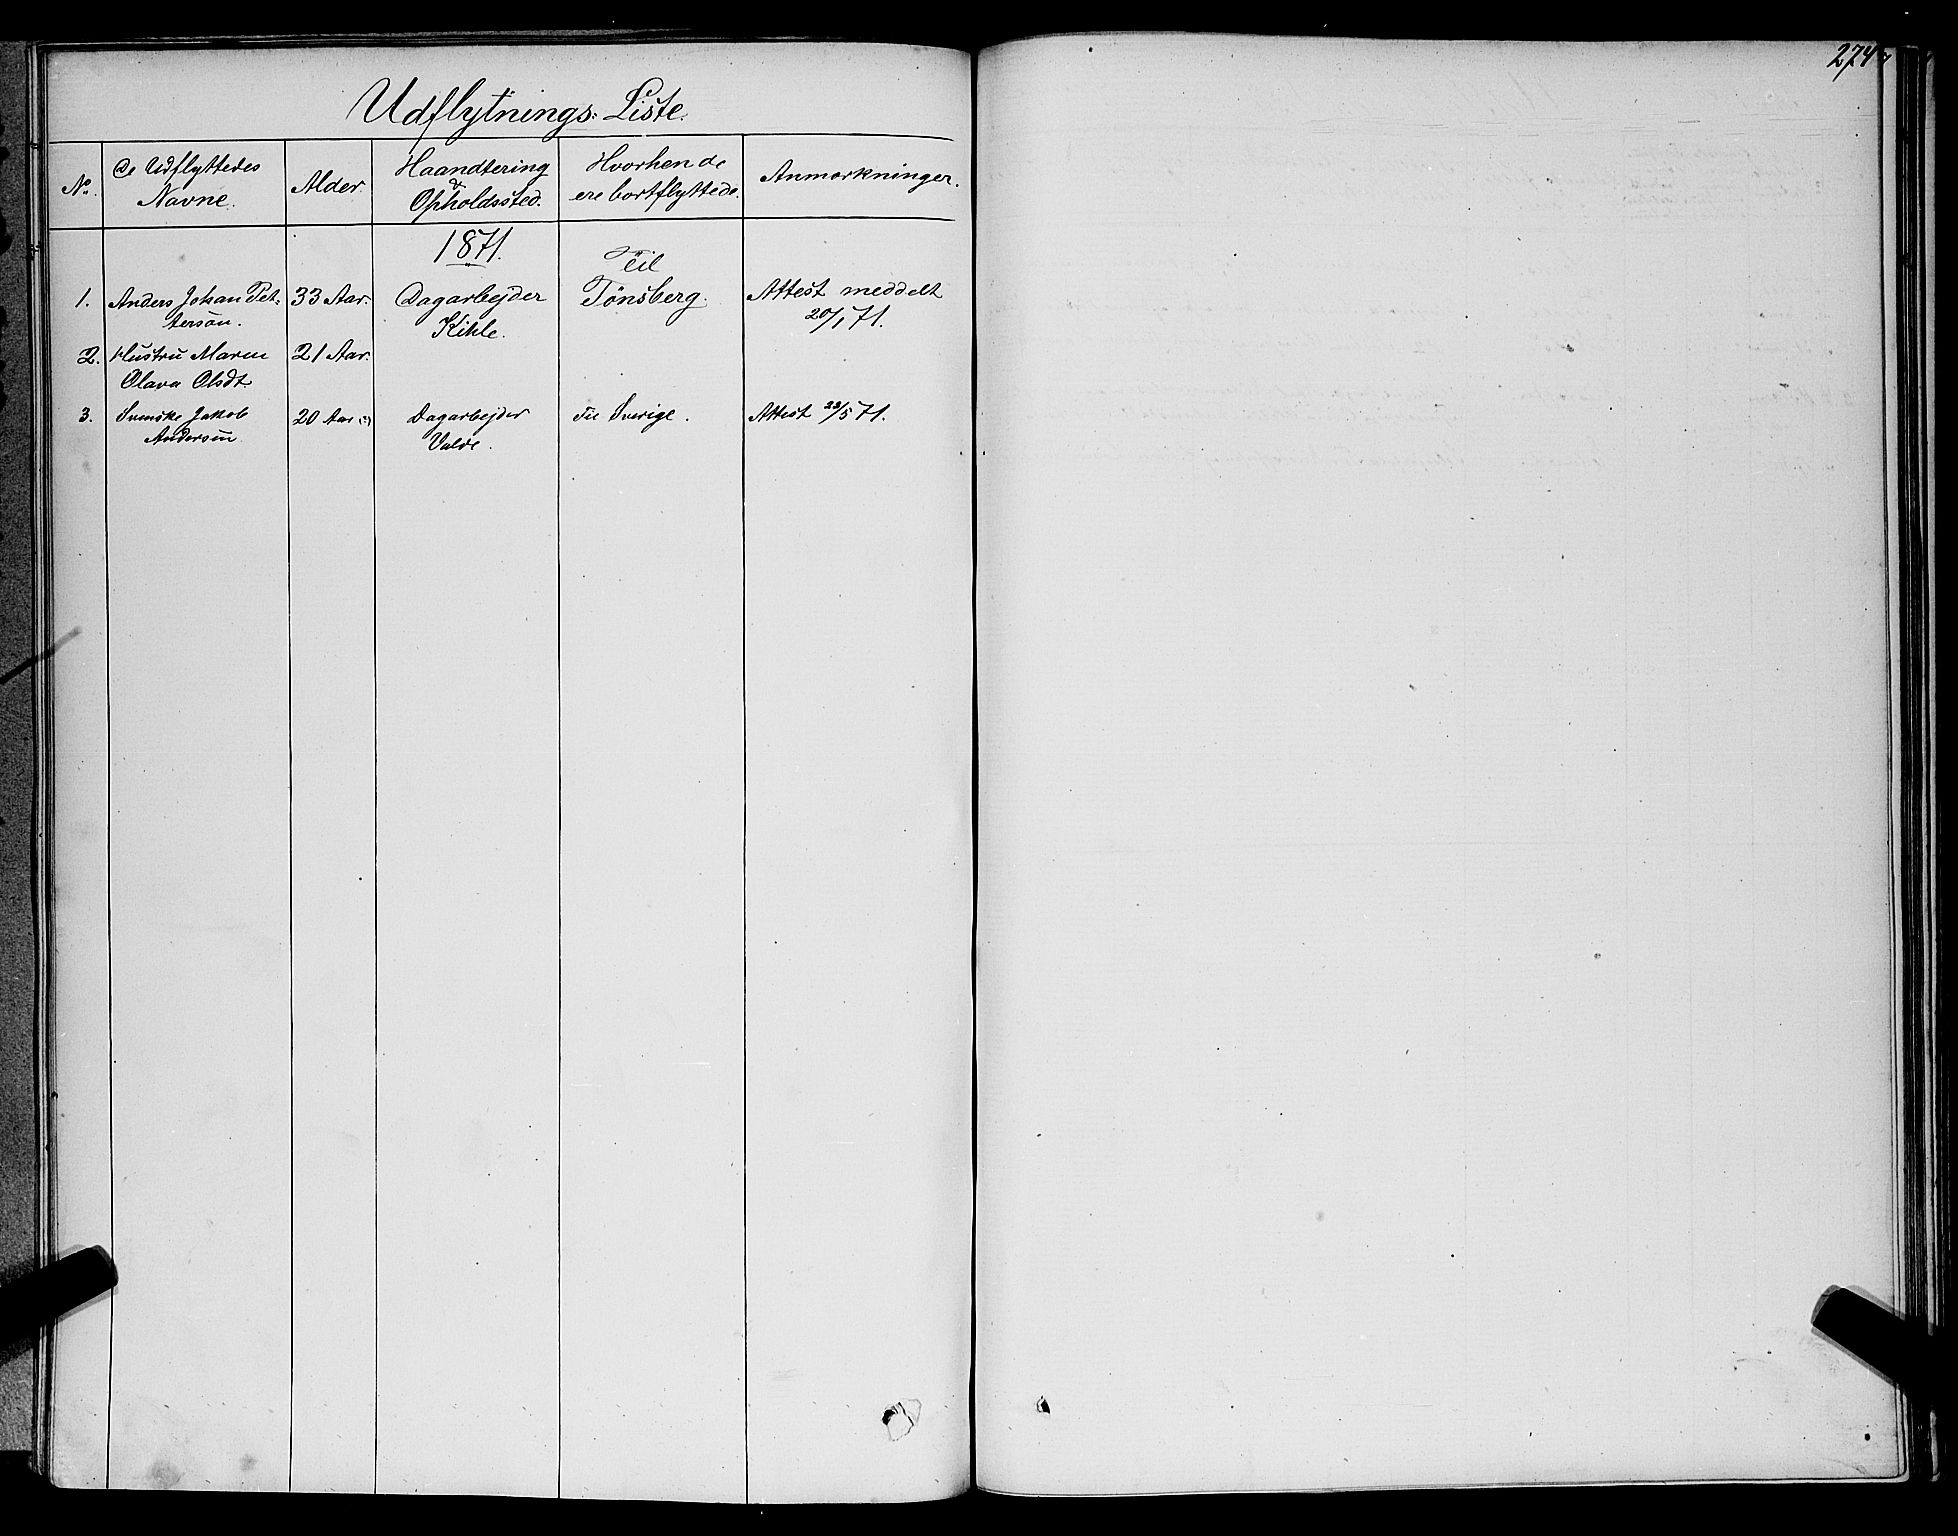 274
Udflytnings: Liste.
No. De Udflyttedes Navne. Alder. Haandtering & Opholdssted. Hvorhen de ere bortflyttede. Anmærkninger.
1871.
Til
1. Anders Johan Pet- 33 Aar. Dagarbejder Tönsberg. Attest meddelt
tersøn. Kihle. 20/1 71.
2. Hustru Maren 21 Aar.
Olava Olsdt.
3. Svenske Jakob 20 Aar (?) Dagarbejder Til Sverige. Attest 23/5 71.
Andersøn Valde.